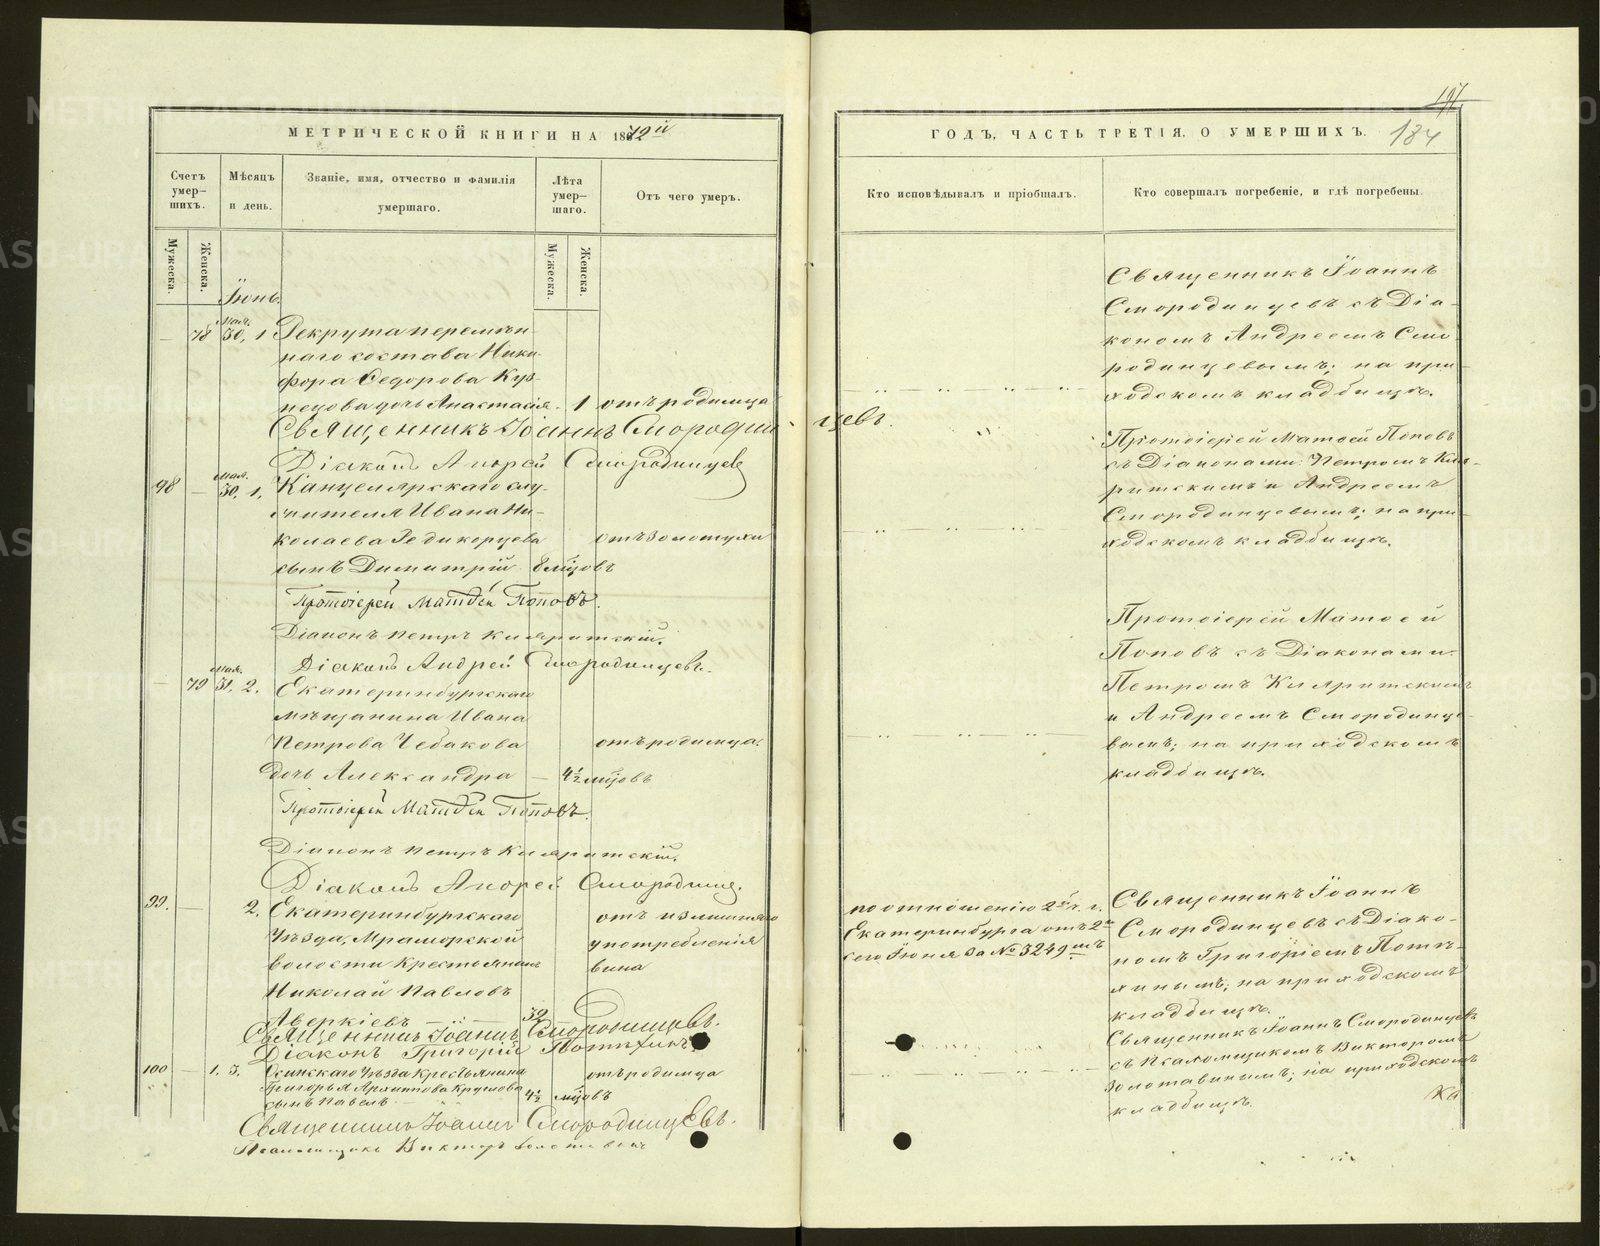 МЕТРИЧЕСКОЙ КНИГИ НА 1872й
Счетъ умер-
шихъ.
Мѣсяцъ
и день.
Званіе, имя, отчество и фамилія
умершаго.
Лѣта
умер-
шаго.
Отъ чего умеръ.
Мужеска.
Женска.
Мужеска.
Женска.
Іюнь.
Мая.
78 30, 1 Рекрута перемѣн-
наго состава Ники-
фора Ѳедорова Куз-
нецова дочь Анастасія. 1 отъ родимца
Священникъ Іоаннъ Смородин-
цевъ.
Діаконъ Андрей Смородинцевъ
Мая.
98 — 30. 1. Канцелярскаго слу-
жителя Ивана Ни-
колаева Редикорцева отъ золотухи
сынъ Димитрій 8 мѣсцовъ
Протоіерей Матѳей Поповъ.
Діаконъ Петръ
Діаконъ Андрей Смородинцевъ.
Мая.
— 79 31. 2. Екатеринбургскаго
мѣщанина Ивана
Петрова Чебакова отъ родимца.
дочь Александра — 4½ мѣсцовъ
Протоіерей Матѳей Поповъ.
Діаконъ Петръ
Діаконъ Андрей Смородинц.
99. — 2. Екатеринбургскаго отъ излишняго
Уѣзда, Мраморской употребленія
волости Крестьянинъ вина
Николай Павловъ
Аверкіевъ — — 32
Священникъ Іоаннъ Смородинцевъ.
Діаконъ Григорій
100 — 1. 3. Осинскаго Уѣзда Крестьянина отъ родимца
Григорья Архиппова
сынъ Павелъ — 4½ мѣсцовъ
Священникъ Іоаннъ Смородинцевъ.
Псаломщикъ Викторъ
ГОДЪ, ЧАСТЬ ТРЕТІЯ, О УМЕРШИХЪ.
184
Кто исповѣдывалъ и пріобщалъ.
Кто совершалъ погребеніе, и гдѣ погребены.
Священникъ Іоаннъ
Смородинцевъ съ Діа-
кономъ Андреемъ Смо-
родинцевымъ; на при-
ходскомъ кладбищѣ.
Протоіерей Матѳей Поповъ
съ Діаконами: Петромъ
и Андреемъ
Смородинцевымъ; на при-
ходскомъ кладбищѣ.
Протоіерей Матѳей
Поповъ съ Діаконами:
Петромъ
и Андреемъ Смородинце-
вымъ; на приходскомъ
кладбищѣ.
по отношенію 2й ч. г.
Екатеринбурга отъ 2го
сего Іюня за № 3249мъ
Священникъ Іоаннъ
Смородинцевъ съ Діако-
номъ Григоріемъ
на приходскомъ
кладбищѣ.
Священникъ Іоаннъ Смородинцевъ
съ Псаломщикомъ Викторомъ
на приходскомъ
кладбищѣ.